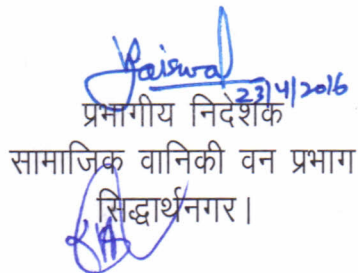 Jaiswal
23/4/2016
प्रभागीय निदेशक
सामाजिक वानिकी वन प्रभाग
सिद्धार्थनगर।